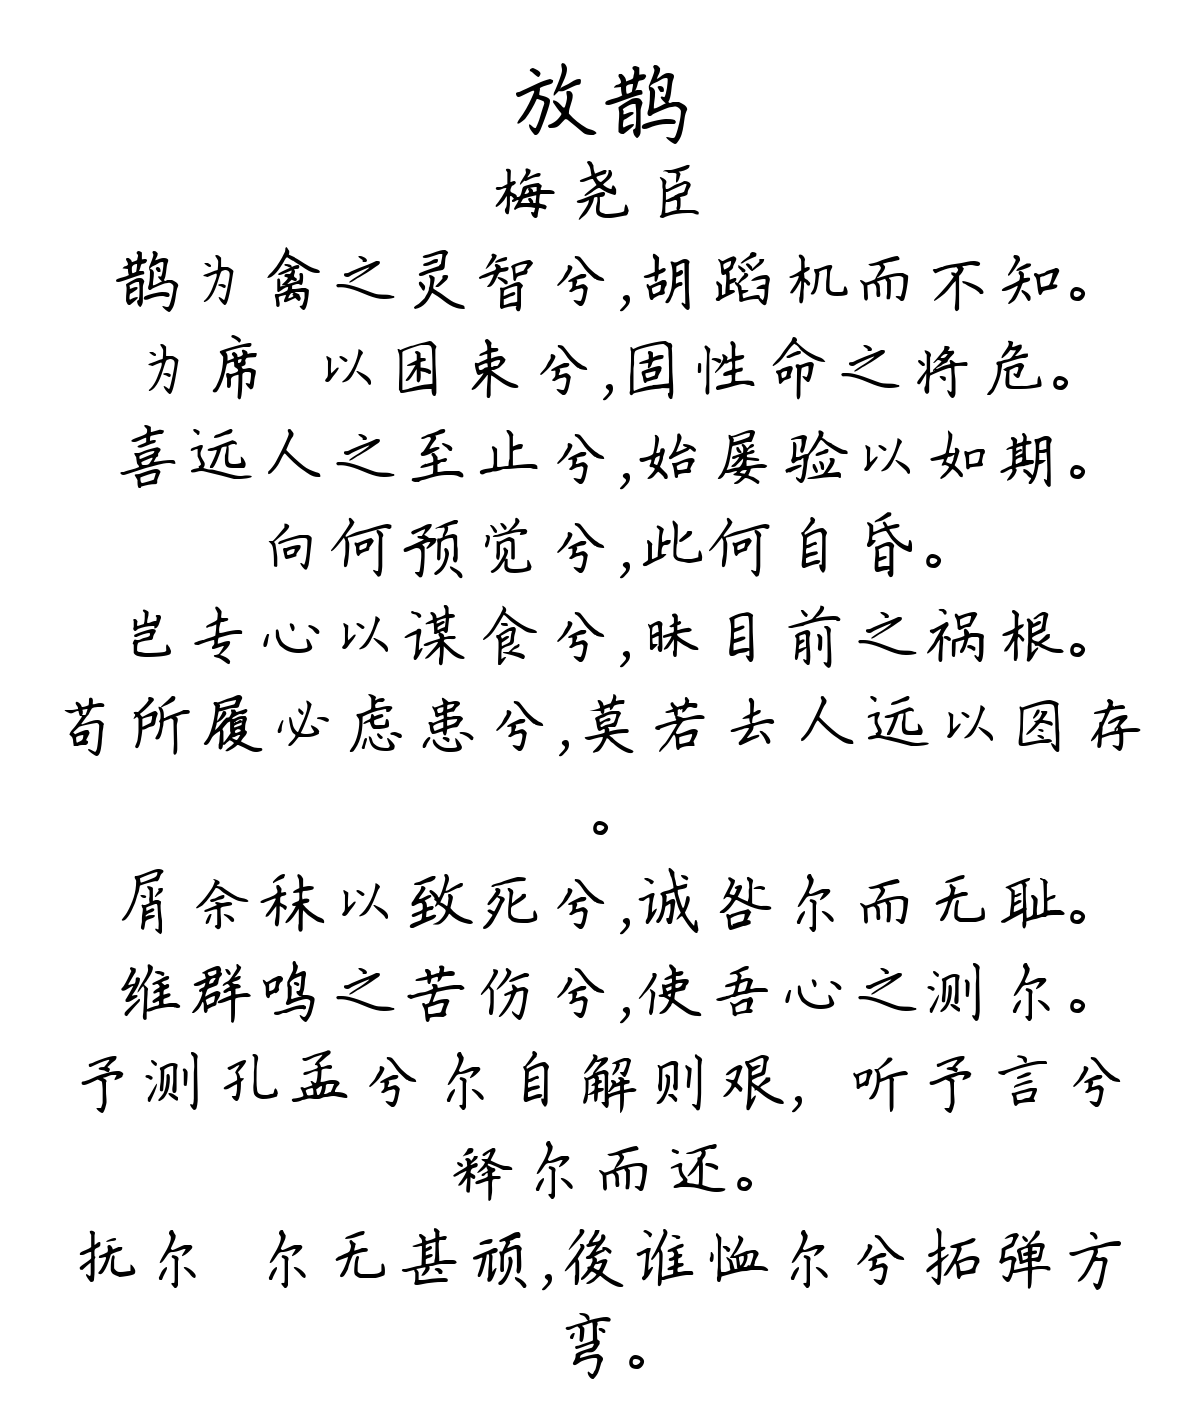 放鹊
梅尧臣
鹊为禽之灵智兮,胡蹈机而不知。
为席 以困束兮,固性命之将危。
喜远人之至止兮,始屡验以如期。
向何预觉兮,此何自昏。
岂专心以谋食兮,昧目前之祸根。
苟所履必虑患兮,莫若去人远以图存
。
屑余秣以致死兮,诚咎尔而无耻。
维群鸣之苦伤兮,使吾心之测尔。
予测孔孟兮尔自解则艰, 听予言兮
释尔而还。
抚尔 尔无甚顽,後谁恤尔兮拓弹方
弯。